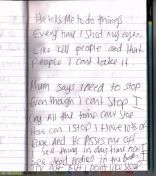 He tells Me to do things
Every time I shut my eyes,
Like kill people and Hurt
People I cant take it

Mum says I need to stop
Even though I cant stop I
cry all the time cant stop
How can I stop I Have lots of
and He Pisses me off
See thing in day time now I
see dead bodies in the
but I dont like